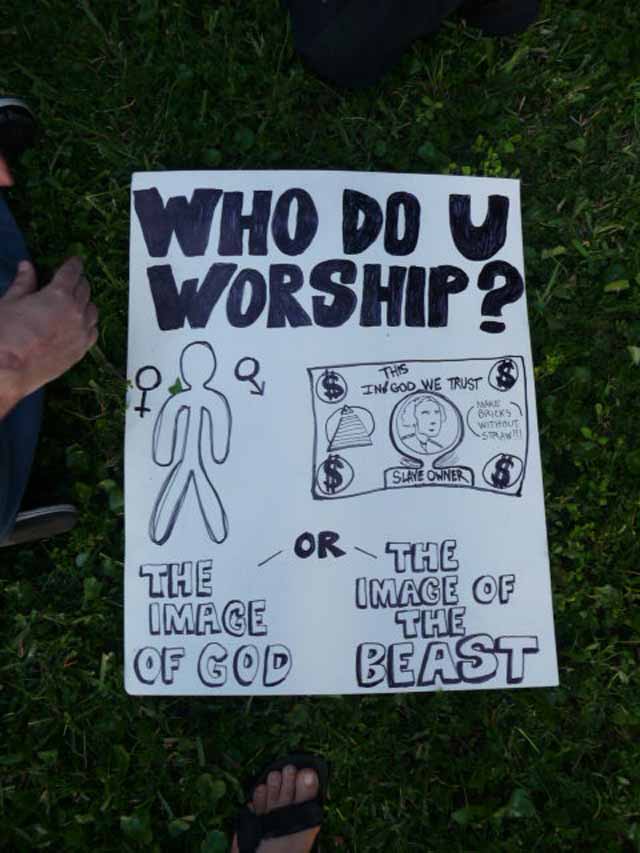 WHO DO U
WORSHIP?
THIS
IN GOD WE TRUST
$
$
MAKE
BRICKS
WITHOUT
STRAW!!!
$
$
SLAVE OWNER
OR
THE
IMAGE
OF GOD
THE
IMAGE OF
THE
BEAST